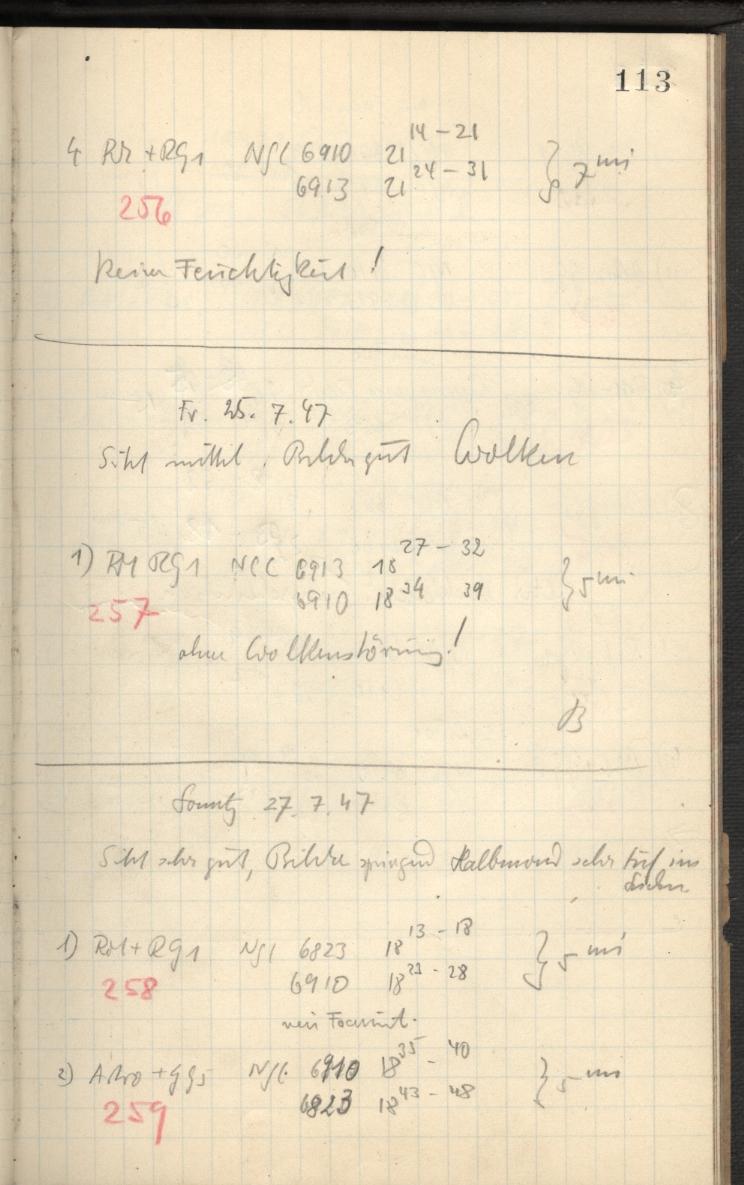 113
4 RM + RG1 NGC 6910 21 14 – 21 } 7 mi
6913 21 24 – 31
256
keine Feuchtigkeit!
Fr. 25. 7. 47
Sicht mittel, Bilder gut Wolken
1) RM RG1 NGC 6913 18 27 – 32 } 5 mi
6910 18 34 39
257
ohne Wolkenstörung!
B
Sonntg 27. 7. 47
Sicht sehr gut, Bilder springend Halbmond sehr tief im
Süden
1) RM + RG1 NGC 6823 18 13 – 18 } 5 mi
6910 18 23 - 28
258
neu
2) Astro + GG5 NGC 6910 18 35 – 40 } 5 mi
6823 18 43 – 48
259